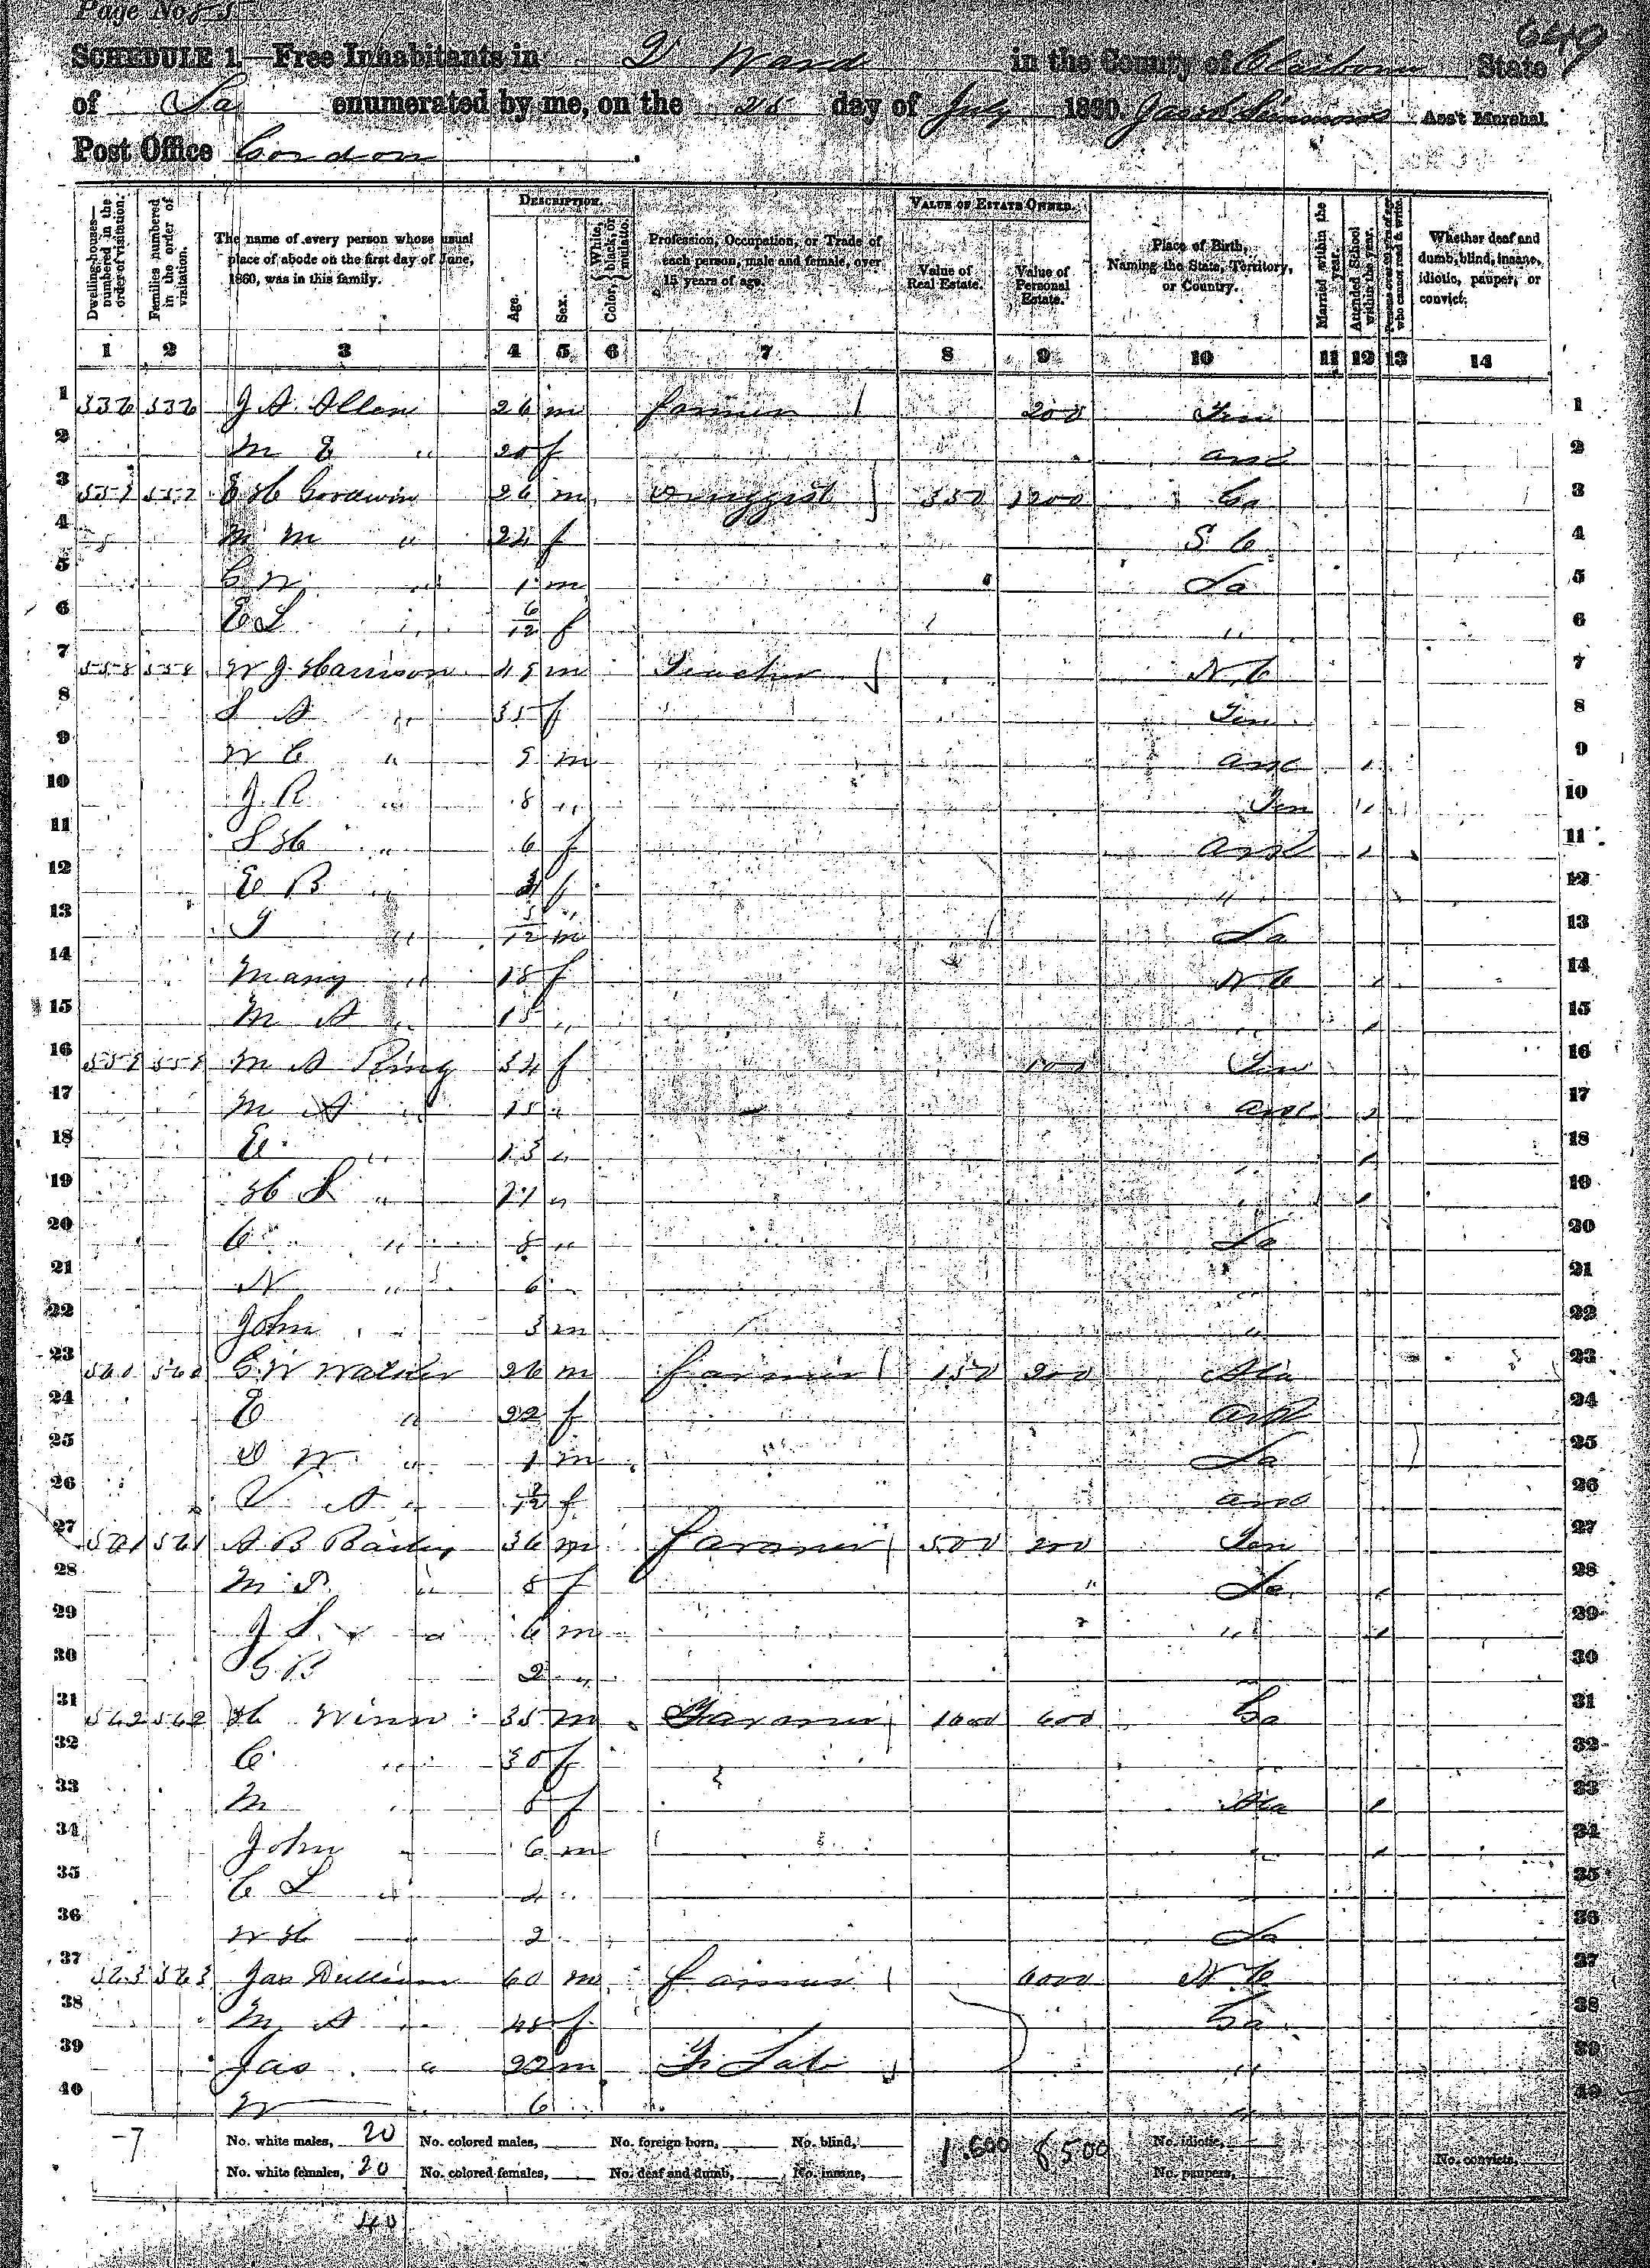 Page No. 85
649
SCHEDULE 1.—Free Inhabitants in D Ward in the County of Claiborne State
of La enumerated by me, on the 25 day of July 1860. Ass't Marshal.
Post Office
DESCRIPTION. VALUE OF ESTATE OWNED.
Dwelling-houses—numbered in the order of visitation.
Families numbered in the order of visitation.
The name of every person whose usual place of abode on the first day of June, 1860, was in this family.
Age.
Sex.
Color, {White, black, or mulatto.
Profession, Occupation, or Trade of each person, male and female, over 15 years of age.
Value of Real Estate.
Value of Personal Estate.
Place of Birth, Naming the State, Territory, or Country.
Married within the year.
Attended School within the year.
Persons over 20 y'rs of age who cannot read & write.
Whether deaf and dumb, blind, insane, idiotic, pauper, or convict.
1 2 3 4 5 6 7 8 9 10 11 12 13 14
1 J A Allen 26 m farmer 200 Ten 1
2 M E " 20 f Ark 2
3 557 557 E H Goodwin 26 m Druggist 350 1200 Ga 3
4 M M " 24 f S C 4
5 " 1 m La 5
6 E L " 6/12 f " 6
7 558 558 W J Harrison 45 m Teacher N C 7
8 S A " 35 f Ten 8
9 W C " 9 m Ark / 9
10 J. R " 8 " Ten / 10
11 S H " 6 f Ark / 11
12 E B " f " 12
13 J " /12 m La 13
14 Mary " 18 f N C / 14
15 M A " 15 " " / 15
16 559 559 M A King 34 f Ten 16
17 M A " 15 " Ark / 17
18 E " 13 " " / 18
19 H S " 11 " " / 19
20 C " 8 " La 20
21 N " 6 " 21
22 John " 3 m " 22
23 560 560 G W Walker 26 m farmer 150 200 Ala 23
24 E " 22 f Ark 24
25 D W " 1 m La 25
26 V A " /12 f Ark 26
27 561 561 A B Bailey 36 m farmer 500 200 Ten 27
28 M " 8 f La / 28
29 J S " 6 m " / 29
30 G B 2 " 30
31 562 562 H Winn 35 m Farmer 1600 600 Ga 31
32 C " 30 f 32
33 M " 8 f Ala / 33
34 John " 6 m " / 34
35 C L " 4 35
36 W H " 2 La 36
37 563 563 Jas 60 m farmer 6000 N C 37
38 M A " 45 f Ga 38
39 Jas " 22 m F Lab " 39
40 W " 6 " 40
-7 No. white males, 20 No. colored males, No. foreign born, No. blind, 1.600 8500 No. idiotic,
No. white females, 20 No. colored females, No. deaf and dumb, No. insane, No. paupers, No. convicts,
40